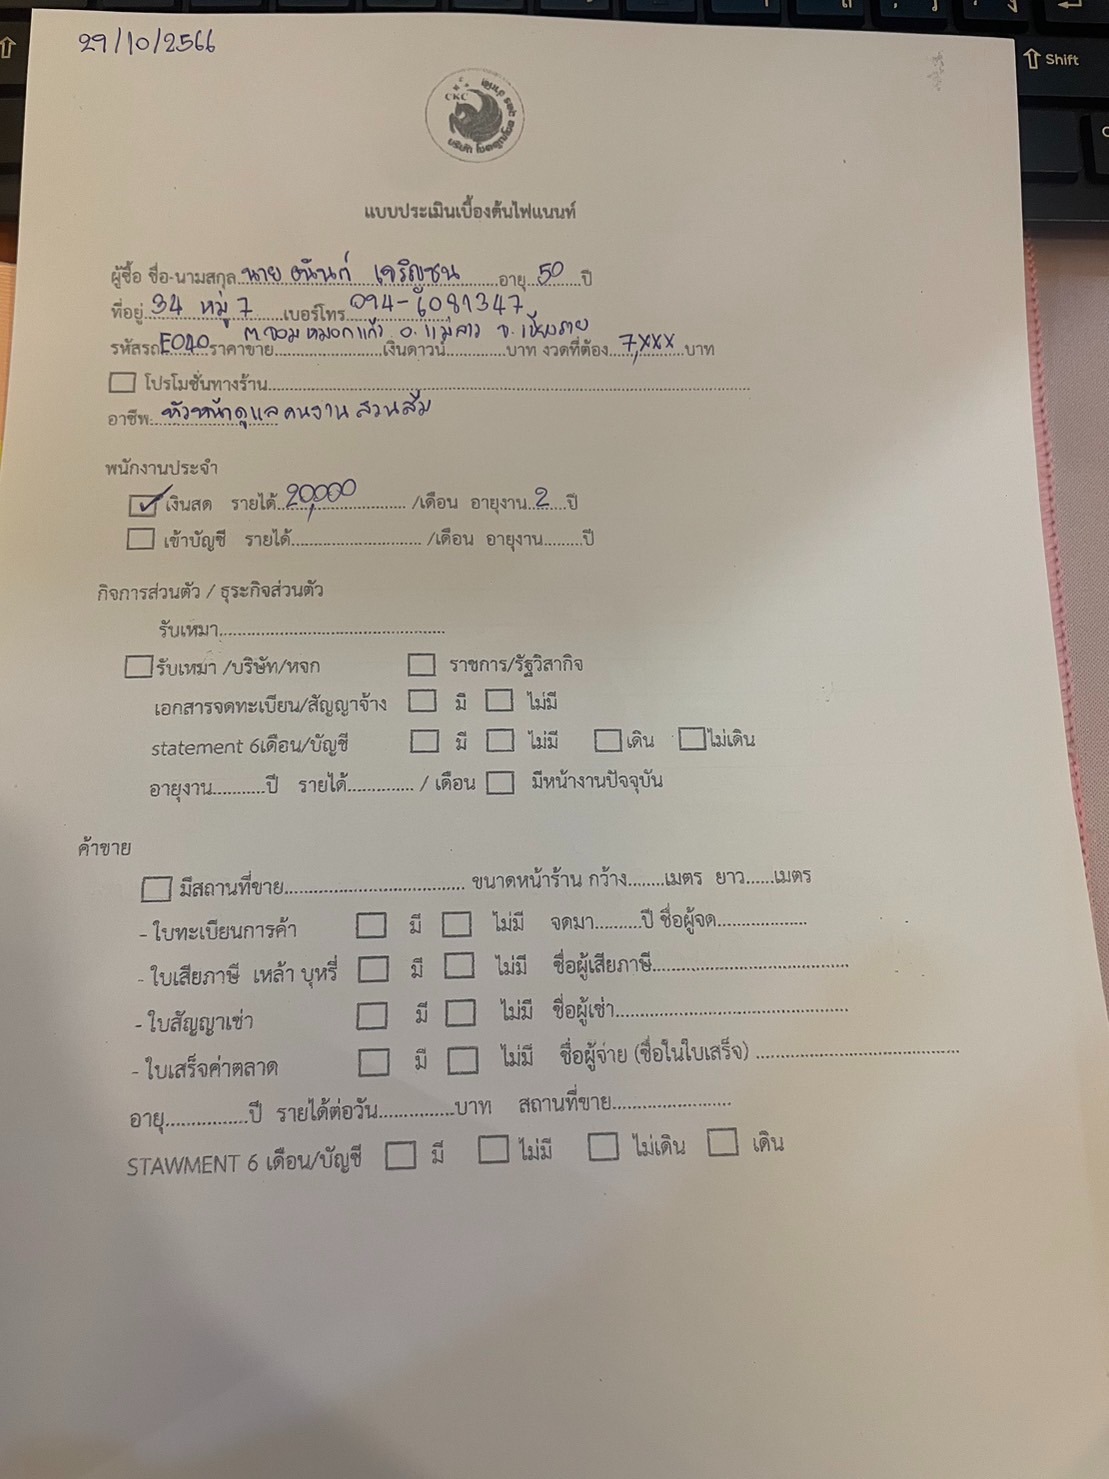 29/10/2566
CKC
แบบประเมินเบื้องต้นไฟแนนท์
ผู้ซื้อ ชื่อ-นามสกุล นาย อนันท์ เจริญชน อายุ 50 ปี
ที่อยู่ 34 หมู่ 7 เบอร์โทร 094-6081347
ต.จอมหมอกแก้ว อ.แม่ลาว จ.เชียงราย
รหัสรถ E040 ราคาขาย..........เงินดาวน์..........บาท งวดที่ต้อง 7,xxx บาท
โปรโมชั่นทางร้าน..........
อาชีพ หัวหน้าดูแลคนงาน สวนส้ม
พนักงานประจำ
เงินสด รายได้ 20,000 /เดือน อายุงาน 2 ปี
เข้าบัญชี รายได้............/เดือน อายุงาน.........ปี
กิจการส่วนตัว / ธุระกิจส่วนตัว
รับเหมา..........
รับเหมา /บริษัท/หจก ราชการ/รัฐวิสากิจ
เอกสารจดทะเบียน/สัญญาจ้าง มี ไม่มี
statement 6เดือน/บัญชี มี ไม่มี เดิน ไม่เดิน
อายุงาน..........ปี รายได้............. / เดือน มีหน้างานปัจจุบัน
ค้าขาย
มีสถานที่ขาย.......... ขนาดหน้าร้าน กว้าง........เมตร ยาว......เมตร
- ใบทะเบียนการค้า มี ไม่มี จดมา..........ปี ชื่อผู้จด..........
- ใบเสียภาษี เหล้า บุหรี่ มี ไม่มี ชื่อผู้เสียภาษี..........
- ใบสัญญาเช่า มี ไม่มี ชื่อผู้เช่า..........
- ใบเสร็จค่าตลาด มี ไม่มี ชื่อผู้จ่าย (ชื่อในใบเสร็จ) ..........
อายุ..........ปี รายได้ต่อวัน..........บาท สถานที่ขาย..........
STAWMENT 6 เดือน/บัญชี มี ไม่มี ไม่เดิน เดิน
Shift